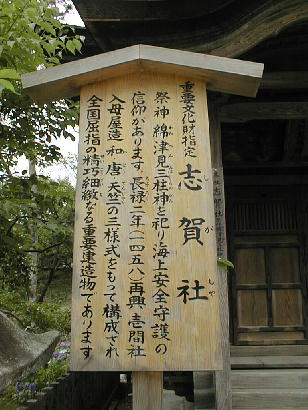 重要文化財指定
志賀社
しがしゃ
祭神 綿津見三柱神を祀り海上安全守護の
信仰があります 長禄二年(一四五八)再興 壱間社
入母屋造 和・唐・天竺の三様式をもって構成され
全国屈指の精巧細緻なる重要建造物であります